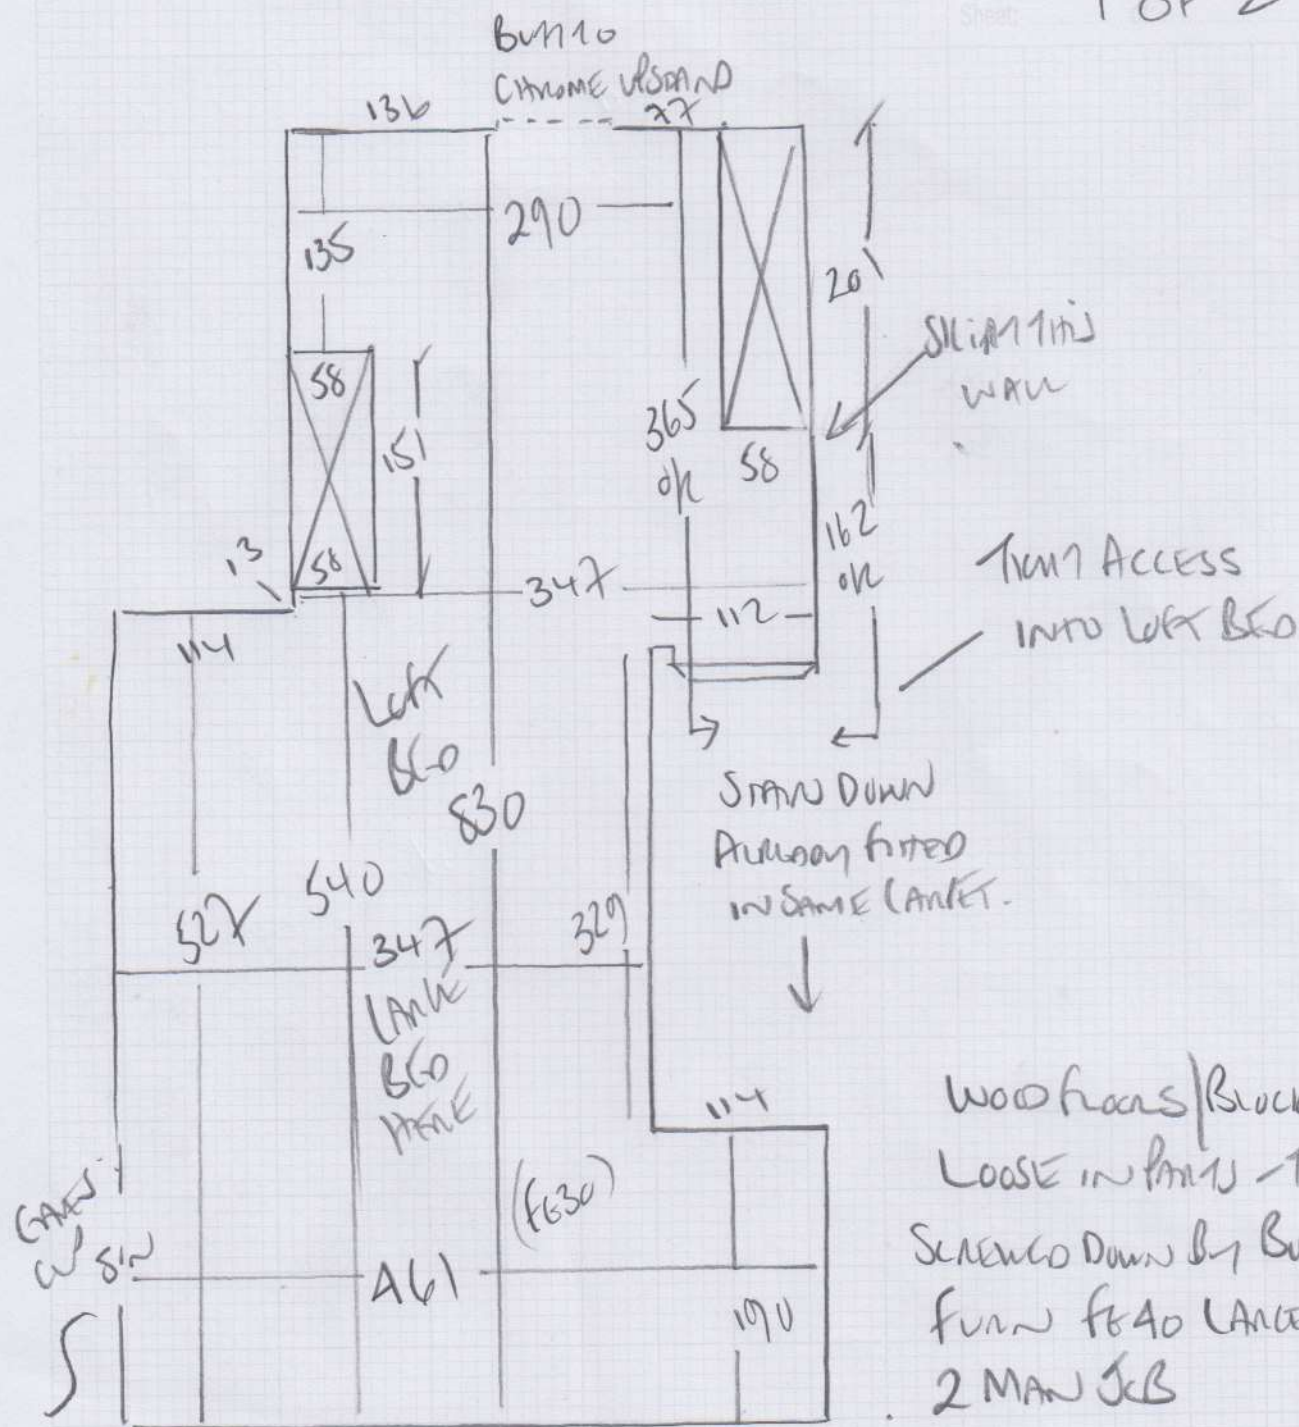 Sheet: 1 OF 2
BUTT TO
CHROME UPSTAND
136
77
290
135
201
SKIM THIS
WALL
58
151
365
OK
58
162
OK
13
58
347
112
TIGHT ACCESS
INTO LOFT BED
114
LOFT
BED
830
STAIR DOWN
ALREADY FITTED
IN SAME CARPET.
527
540
347
329
LARGE
BED
HERE
114
(FE30)
WOOD FLOORS/BLOCK
LOOSE IN PARTS - T
SCREWED DOWN BY BU
FURN FE40 LARGE
2 MAN JOB
EAVES
461
190